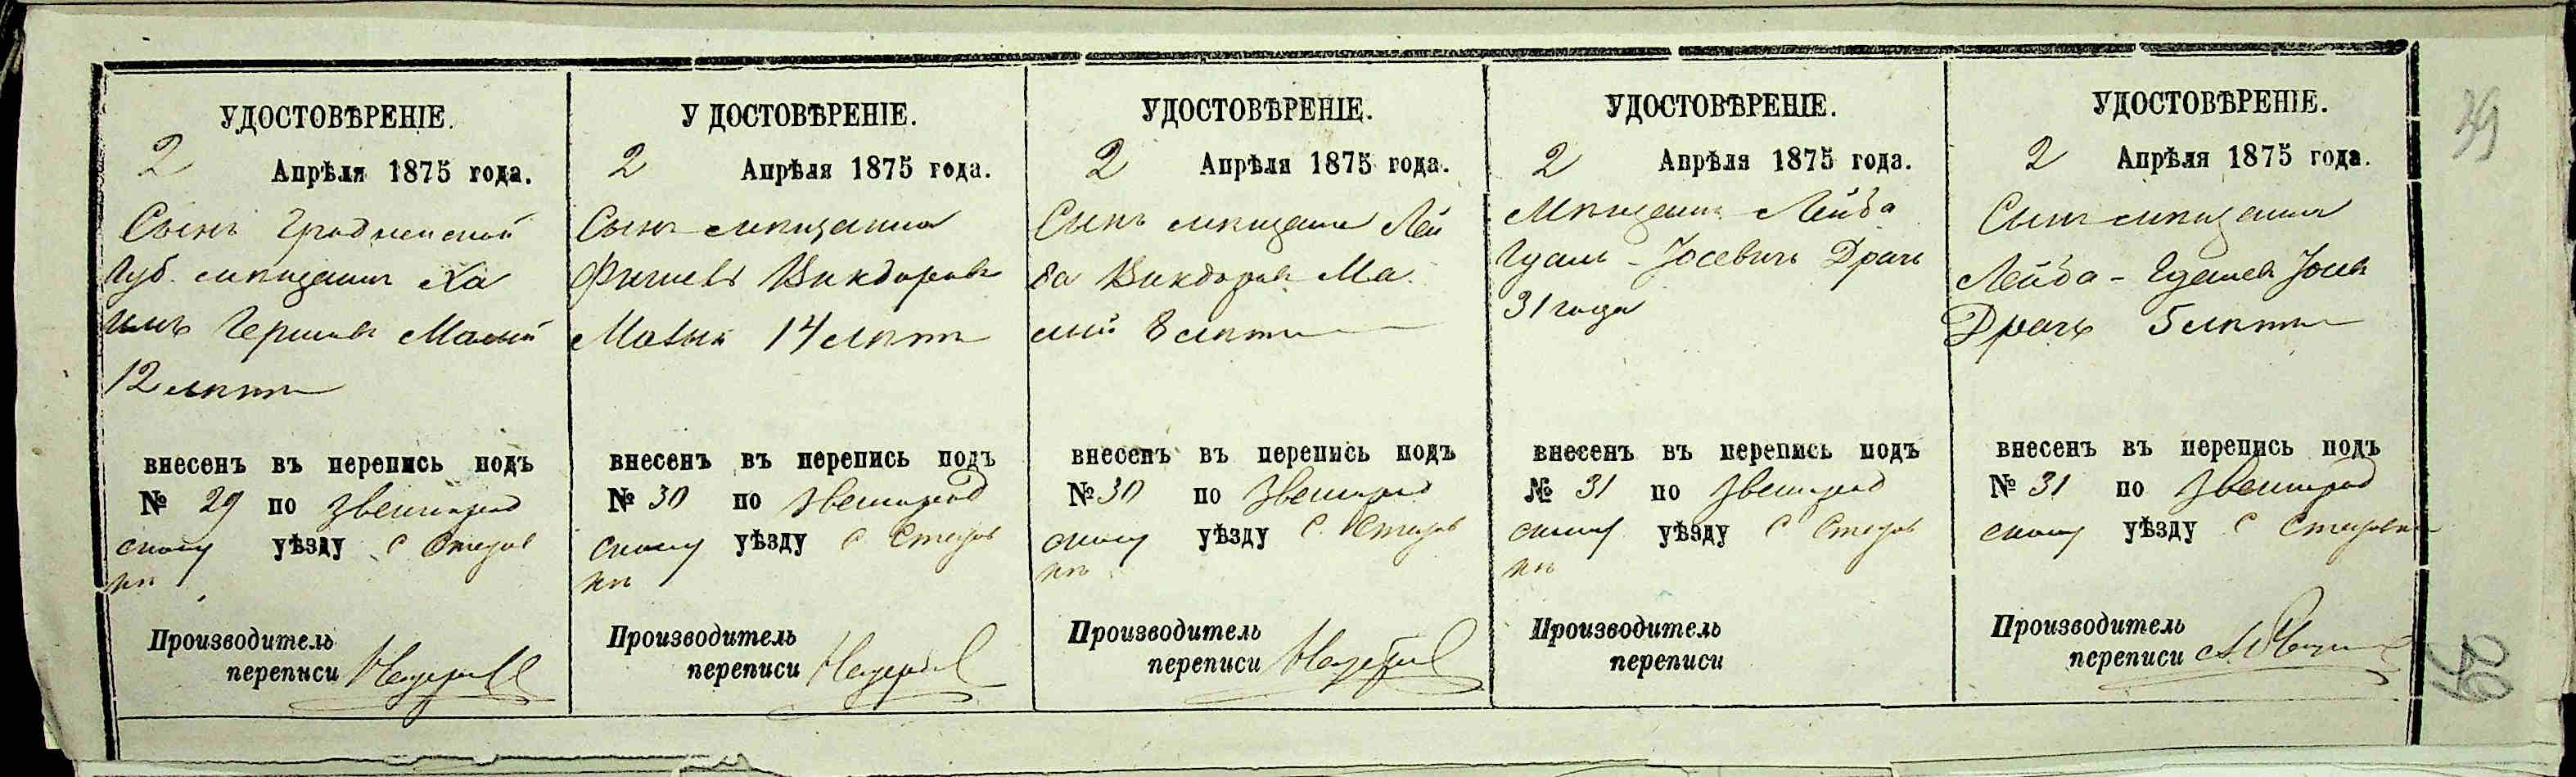 УДОСТОВѢРЕНІЕ.
2 Апрѣля 1875 года.
Сынъ Гродненской
Губ. мѣщанин Ха
имъ Гершков Малый
12 лѣтъ
внесенъ въ перепись подъ
№ 29 по Звенигород
скому уѣзду с
кѣ
Производитель
переписи
УДОСТОВѢРЕНІЕ.
2 Апрѣля 1875 года.
Сынъ мѣщанина
Викторов
14 лѣтъ
внесенъ въ перепись подъ
№ 30 по Звенигород
скому уѣзду с
кѣ
Производитель
переписи
УДОСТОВѢРЕНІЕ.
2 Апрѣля 1875 года.
Сынъ мѣщанина Лей
ба Викторов Ма
лый 8 лѣтъ
внесенъ въ перепись подъ
№ 30 по Звенигород
скому уѣзду с.
кѣ
Производитель
переписи
УДОСТОВѢРЕНІЕ.
2 Апрѣля 1875 года.
Мѣщанинъ Лейба
Іосевичъ Драчъ
31 года
внесенъ въ перепись подъ
№ 31 по Звенигород
скому уѣзду с
кѣ
Производитель
переписи
УДОСТОВѢРЕНІЕ.
2 Апрѣля 1875 года.
Сынъ мѣщанина
Лейба -
Драчъ 5 лѣтъ
внесенъ въ перепись подъ
№ 31 по Звенигород
скому уѣзду с
Производитель
переписи